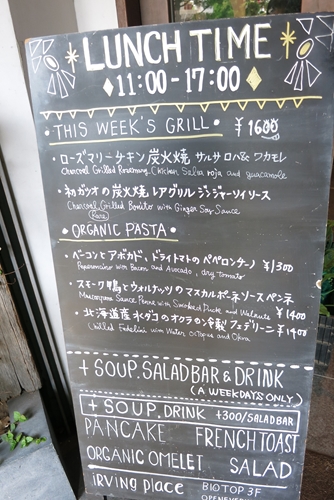 LUNCH TIME
11:00-17:00
• THIS WEEK'S GRILL • ¥1600
• ローズマリーチキン 炭火焼 サルサロハ& ワカモレ
Charcoal Grilled Rosemary Chicken Salsa roja and guacamole
• 初ガツオの炭火焼 レアグリル ジンジャーソイソース
Charcoal Grilled Bonito with Ginger Soy Sauce
Rare
• ORGANIC PASTA •
• ベーコンとアボカド、ドライトマトのペペロンチーノ ¥1300
Peperoncino with Bacon and Avocado, dry tomato
• スモーク鴨とウォルナッツのマスカルポーネソースペンネ
Mascarpone Sauce Penne with Smoked Duck and Walnuts ¥1400
• 北海道産水ダコのオクラ 冷製フェデリーニ ¥1400
Chilled Fedelini with Water octopus and Okra
+ SOUP, SALADBAR & DRINK
(A WEEKDAYS ONLY)
+ SOUP, DRINK +300/SALADBAR
PANCAKE FRENCHTOAST
ORGANIC OMELET SALAD
irving place BIOTOP 3F